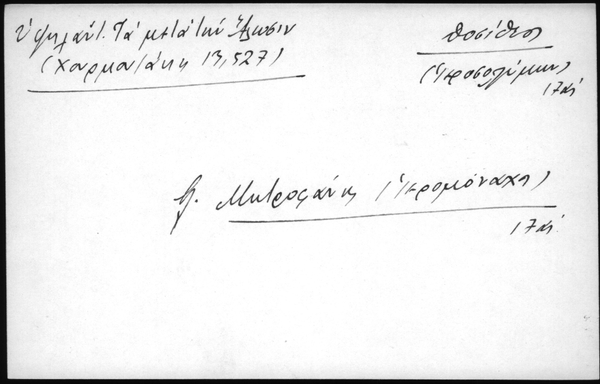 Ὑψηλάντ. Τὰ μετὰ τὴν Ἅλωσιν
(Χουρμουζάκη 13, 527)
Δοσίθεος
(Ἱεροσολύμων)
17αἰ
βλ. Μητροφάνης (Ἱερομόναχος)
17αἰ.